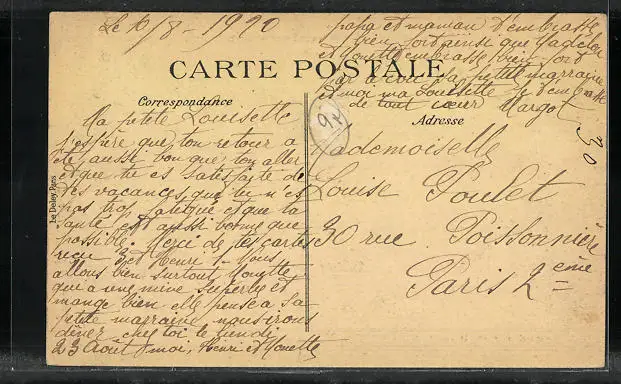 Le 10/8 - 1920
papa et maman t'embrasse
bien fort ainsi que Madelon
et Nonette embrasse bien fort
sa petite marraine
et moi ma Louisette je t'embrasse
de tout cœur Margot
CARTE POSTALE
Correspondance
Adresse
Ma petite Louisette
j'espère que ton retour a
été aussi bon que ton aller
et que tu es satisfaite de
tes vacances, que tu n'es
pas trop fatiguée et que ta
santé est aussi bonne que
possible. Merci de tes cartes
reçu Henri. Nous
allons bien surtout Nonette
qui a une mine superbe et
mange bien elle pense a sa
petite marraine nous irons
dîner chez toi le lundi
23 Août moi, Henri et Nonette
Mademoiselle
Louise Poulet
30 rue Poissonnière
Paris 2ème
Le Deley, Paris
30